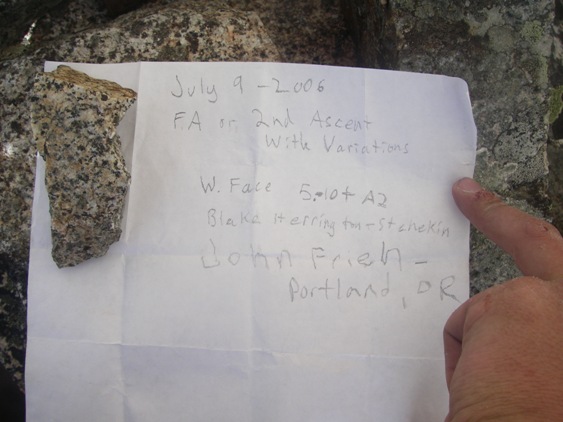 July 9 - 2006
FA or 2nd Ascent
With Variations
W. Face 5.10+ A2
Blake Herrington - Stehekin
John Frieh -
Portland, OR